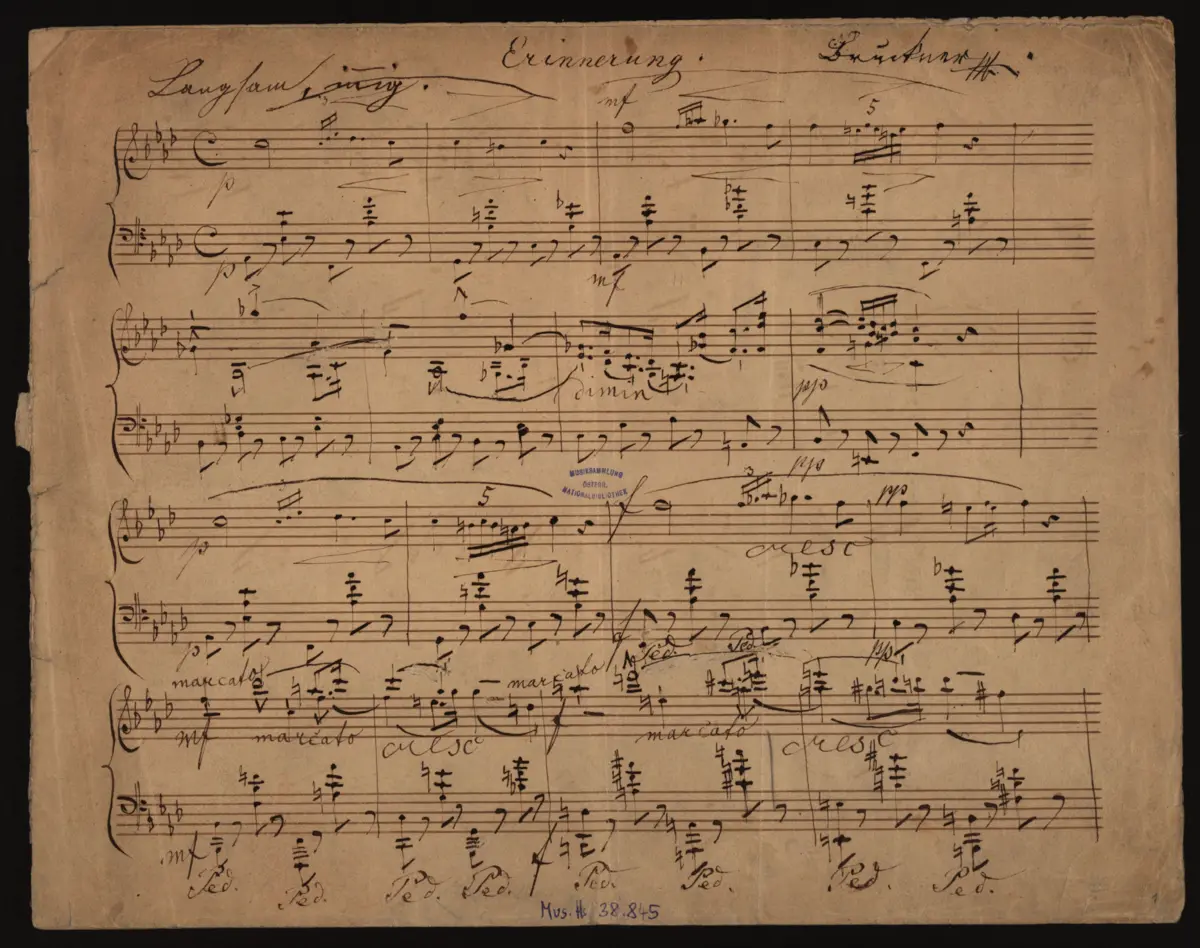 Erinnerung. Bruckner
Langsam, innig.
mf
5
p
p
mf
dimin
pp
pp
MUSIKSAMMLUNG
ÖSTERR.
NATIONALBIBLIOTHEK
3
5
f
pp
p
cresc
p
f
Ped. Ped.
pp
marcato
marcato
mf marcato cresc f marcato cresc
mf
f
Ped. Ped. Ped. Ped. Ped. Ped. Ped. Ped.
Mus. Hs. 38.845